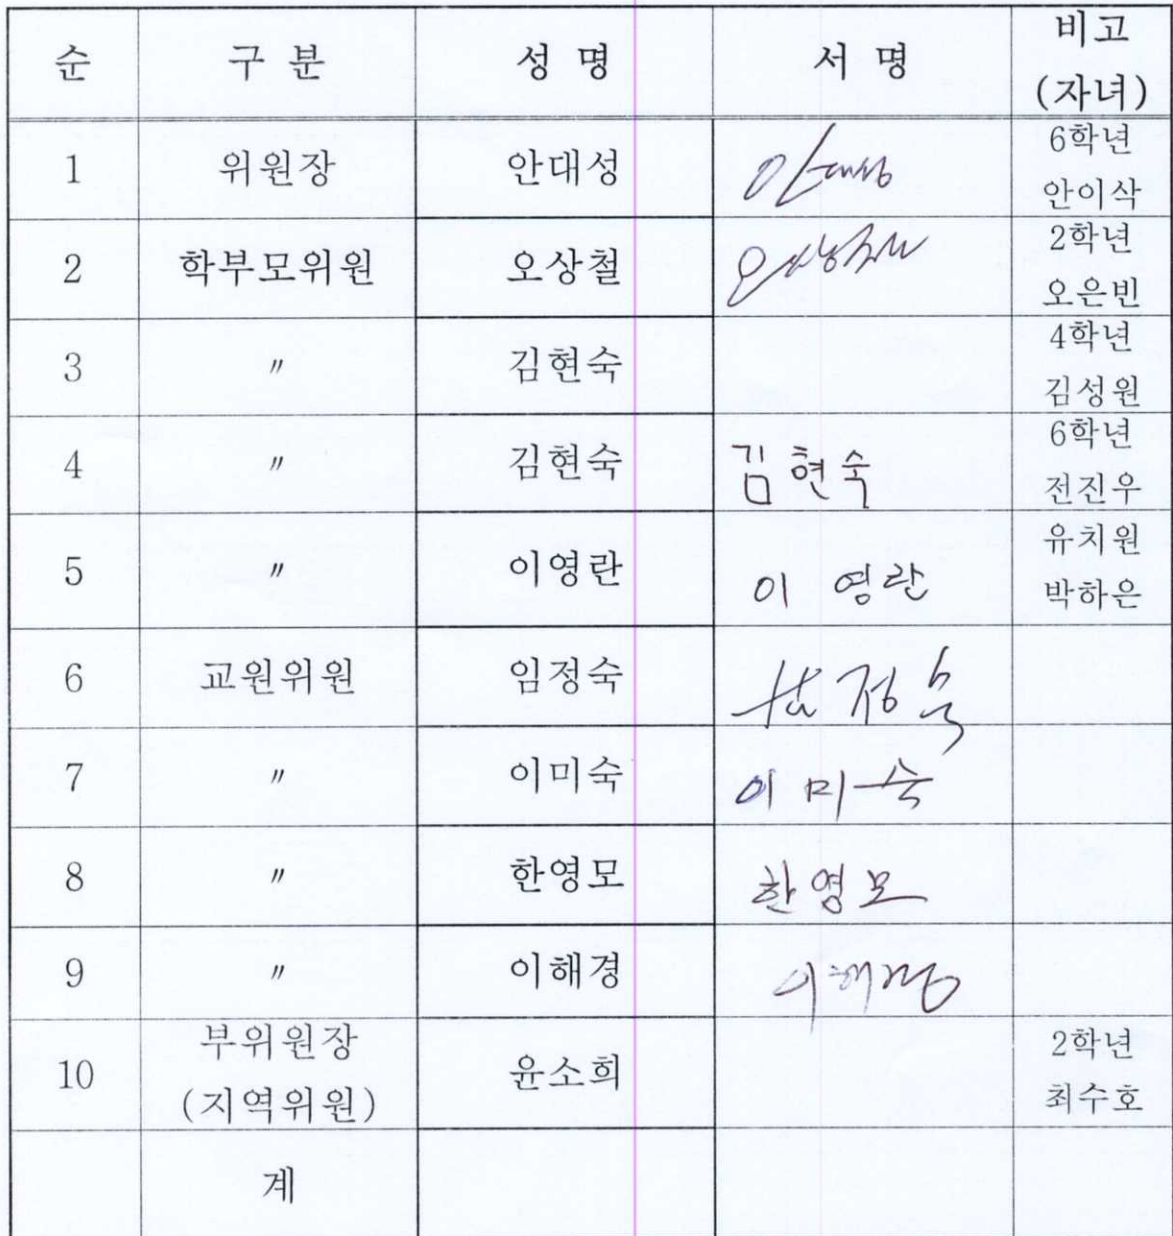 순 구 분 성 명 서 명 비고
(자녀)
1 위원장 안대성 안대성 6학년
안이삭
2 학부모위원 오상철 오상철 2학년
오은빈
3 〃 김현숙 4학년
김성원
4 〃 김현숙 김현숙 6학년
전진우
5 〃 이영란 이 영란 유치원
박하은
6 교원위원 임정숙 정숙
7 〃 이미숙 이미숙
8 〃 한영모 한영모
9 〃 이해경 이해경
10 부위원장
(지역위원) 윤소희 2학년
최수호
계